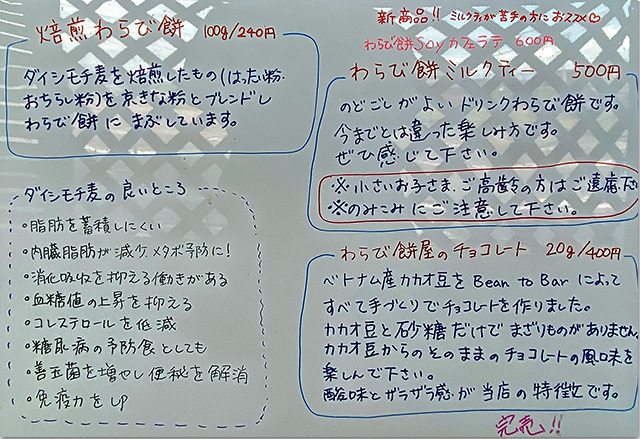 焙煎わらび餅 100g/240円
ダイシモチ麦を焙煎したもの(はったい粉.
おちらし粉)を京きな粉とブレンドし
わらび餅に まぶしています。
ダイシモチ麦の良いところ
・脂肪を蓄積しにくい
・内臓脂肪が減少.メタボ予防に!
・消化吸収を抑える働きがある
・血糖値の上昇を抑える
・コレステロールを低減
・糖尿病の予防食としても
・善玉菌を増やし便秘を解消
・免疫力をUP
新商品!! ミルクティが苦手の方におススメ♡
わらび餅Soyカフェラテ 600円
わらび餅ミルクティー 500円
のどごしがよいドリンクわらび餅です。
今までとは違った楽しみ方です。
ぜひ感じて下さい。
※小さいお子さま.ご高齢の方はご遠慮下
※のみこみにご注意して下さい。
わらび餅屋のチョコレート 20g/400円
ベトナム産カカオ豆を Bean to Bar によって
すべて手づくりでチョコレートを作りました。
カカオ豆と砂糖だけで まざりものがありません.
カカオ豆からのそのままのチョコレートの風味を
楽しんで下さい。
酸味とザラザラ感が当店の特徴です。
完売!!